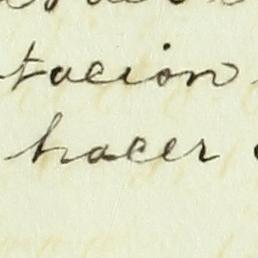 tacion
hacer